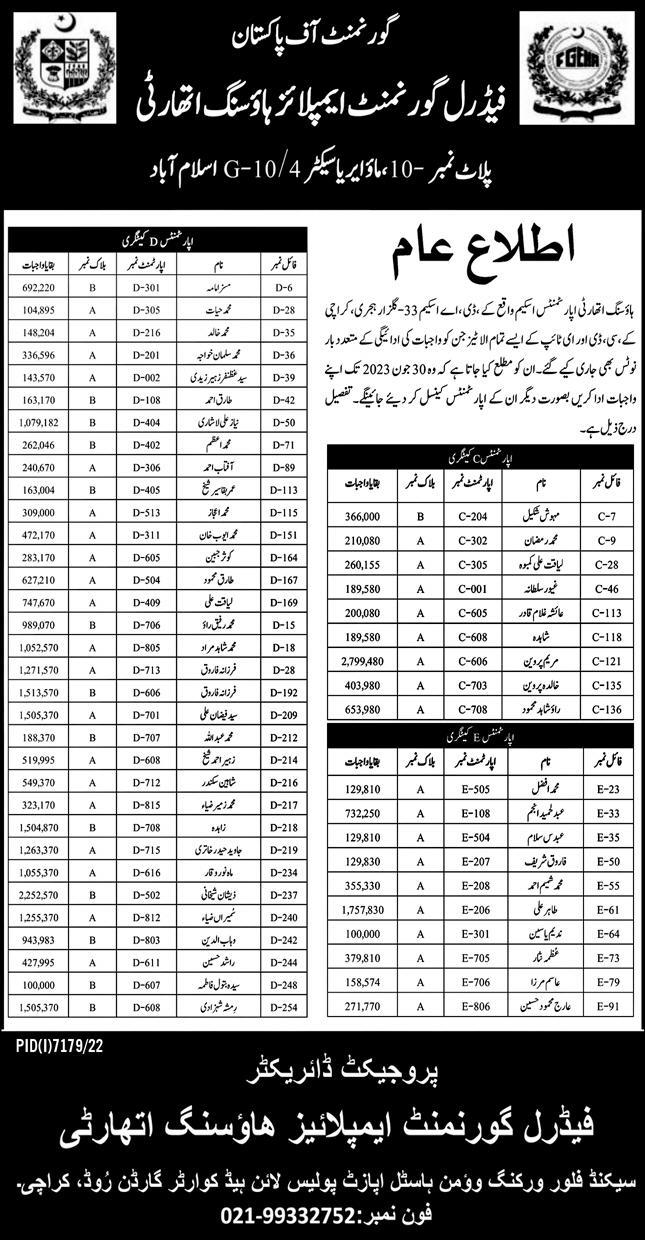 گورنمنٹ آف پاکستان
فیڈرل گورنمنٹ ایمپلائز ہاؤسنگ اتھارٹی
پلاٹ نمبر -10، ماؤ ایریا سیکٹر G-10/4 اسلام آباد
FGEHA
اطلاع عام
ہاؤسنگ اتھارٹی اپارٹمنٹس اسکیم واقع کے، ڈی، اے اسکیم 33-گلزار ہجری، کراچی
کے، سی، ڈی اور ای ٹائپ کے ایسے تمام الاٹیز جن کو واجبات کی ادائیگی کے متعدد بار
نوٹس بھی جاری کیے گئے۔ ان کو مطلع کیا جاتا ہے کہ وہ 30 جون 2023 تک اپنے
واجبات ادا کریں بصورت دیگر ان کے اپارٹمنٹس کینسل کر دیئے جائینگے۔ تفصیل
درج ذیل ہے۔
اپارٹمنٹس C کیٹگری
فائل نمبر نام اپارٹمنٹ نمبر بلاک نمبر بقایا واجبات
C-7 مہوش شکیل C-204 B 366,000
C-9 محمد رمضان C-302 A 210,080
C-28 لیاقت علی کمبوہ C-305 A 260,155
C-46 غیور سلطانہ C-001 A 189,580
C-113 عائشہ غلام قادر C-605 A 200,080
C-118 شاہدہ C-608 A 189,580
C-121 مریم پروین C-606 A 2,799,480
C-135 خالدہ پروین C-703 A 403,980
C-136 راؤ شاہد محمود C-708 A 653,980
اپارٹمنٹس E کیٹگری
فائل نمبر نام اپارٹمنٹ نمبر بلاک نمبر بقایا واجبات
E-23 محمد افضل E-505 A 129,810
E-33 عبدالحمید انجم E-108 A 732,250
E-35 عبدس سلام E-504 A 129,810
E-50 فاروق شریف E-207 A 129,830
E-55 محمد شمیم احمد E-208 A 355,330
E-61 طاہر علی E-206 A 1,757,830
E-64 ندیم یاسین E-301 A 100,000
E-73 عظمہ نثار E-705 A 379,810
E-79 عاسم مرزا E-706 A 158,574
E-91 عارج محمود حسین E-806 A 271,770
اپارٹمنٹس D کیٹگری
فائل نمبر نام اپارٹمنٹ نمبر بلاک نمبر بقایا واجبات
D-6 مسز امامہ D-301 B 692,220
D-28 محمد حیات D-305 A 104,895
D-35 محمد خالد D-216 A 148,204
D-36 محمد سلمان خواجہ D-201 A 336,596
D-39 سید غظنفر زہیر زیدی D-002 A 143,570
D-42 طارق احمد D-108 B 163,170
D-50 نیاز علی لاشاری D-404 B 1,079,182
D-71 محمد اعظم D-402 B 262,046
D-89 آفتاب احمد D-306 A 240,670
D-113 عمر بقا سیر شیخ D-405 B 163,004
D-115 محمد اعجاز D-513 A 309,000
D-151 محمد ایوب خان D-311 A 472,170
D-164 کوثر جبین D-605 A 283,170
D-167 طارق محمود D-504 A 627,210
D-169 لیاقت علی D-409 A 747,670
D-15 محمد رفیق راؤ D-706 B 989,070
D-18 محمد شاہد مراد D-805 A 1,052,570
D-28 فرزانہ فاروق D-713 A 1,271,570
D-192 فرزانہ فاروق D-606 B 1,513,570
D-209 سید فیضان علی D-701 A 1,505,370
D-212 محمد عبداللہ D-707 B 188,370
D-214 زہیر احمد شیخ D-608 A 519,995
D-216 شاہین سکندر D-712 A 549,370
D-217 محمد زمیر ضیاء D-815 A 323,170
D-218 زاہدہ D-708 B 1,504,870
D-219 جاوید حیدر خاتری D-715 A 1,263,370
D-234 ماہ نور وقار D-616 A 1,055,370
D-237 ذیشان شیخانی D-502 B 2,252,570
D-240 ثمیراں ضیاء D-812 A 1,255,370
D-242 وہاب الدین D-803 B 943,983
D-244 راشد حسین D-611 A 427,995
D-248 سیدہ بتول فاطمہ D-607 B 100,000
D-254 رمشہ شہزادی D-608 B 1,505,370
PID(I)7179/22
پروجیکٹ ڈائریکٹر
فیڈرل گورنمنٹ ایمپلائیز ھاؤسنگ اتھارٹی
سیکنڈ فلور ورکنگ وؤمن ہاسٹل اپازٹ پولیس لائن ہیڈ کوارٹر گارڈن رُوڈ، کراچی۔
فون نمبر:021-99332752